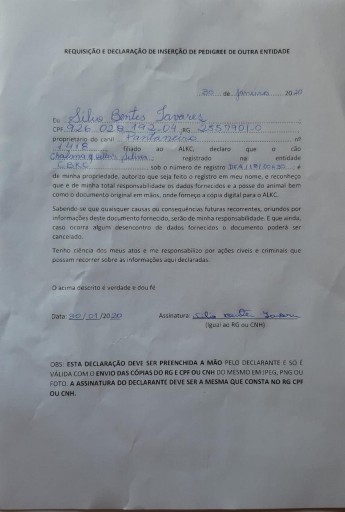 REQUISIÇÃO E DECLARAÇÃO DE INSERÇÃO DE PEDIGREE DE OUTRA ENTIDADE
30 de Janeiro 2020
Eu Silvio Bentes Tavares
CPF 926 028 192 04 RG
proprietário do canil Pantaneiro nº
1418 filiado ao ALKC, declaro que o cão
registrado na entidade
CBKC sob o número de registro e
de minha propriedade, autorizo que seja feito o registro em meu nome, e reconheço
que e de minha total responsabilidade os dados fornecidos e a posse do animal bem
como o documento original em mãos, onde forneço a cópia digital para o ALKC.
Sabendo se que quaisquer causas ou consequências futuras recorrentes, oriundos por
informações deste documento fornecido, serão de minha responsabilidade. E que ainda,
caso ocorra algum desencontro de dados fornecidos o documento poderá ser
cancelado.
Tenho ciência dos meus atos e me responsabilizo por ações civeis e criminais que
possam recorrer sobre as informações aqui declaradas.
O acima descrito é verdade e dou fé
Data: 30/01/2020 Assinatura: Silvio Bentes Tavares
(igual ao RG ou CNH)
OBS: ESTA DECLARAÇÃO DEVE SER PREENCHIDA A MÃO PELO DECLARANTE E SÓ E
VÁLIDA COM O ENVIO DAS CÓPIAS DO RG E CPF OU CNH DO MESMO EM JPEG, PNG OU
FOTO. A ASSINATURA DO DECLARANTE DEVE SER A MESMA QUE CONSTA NO RG CPF
OU CNH.